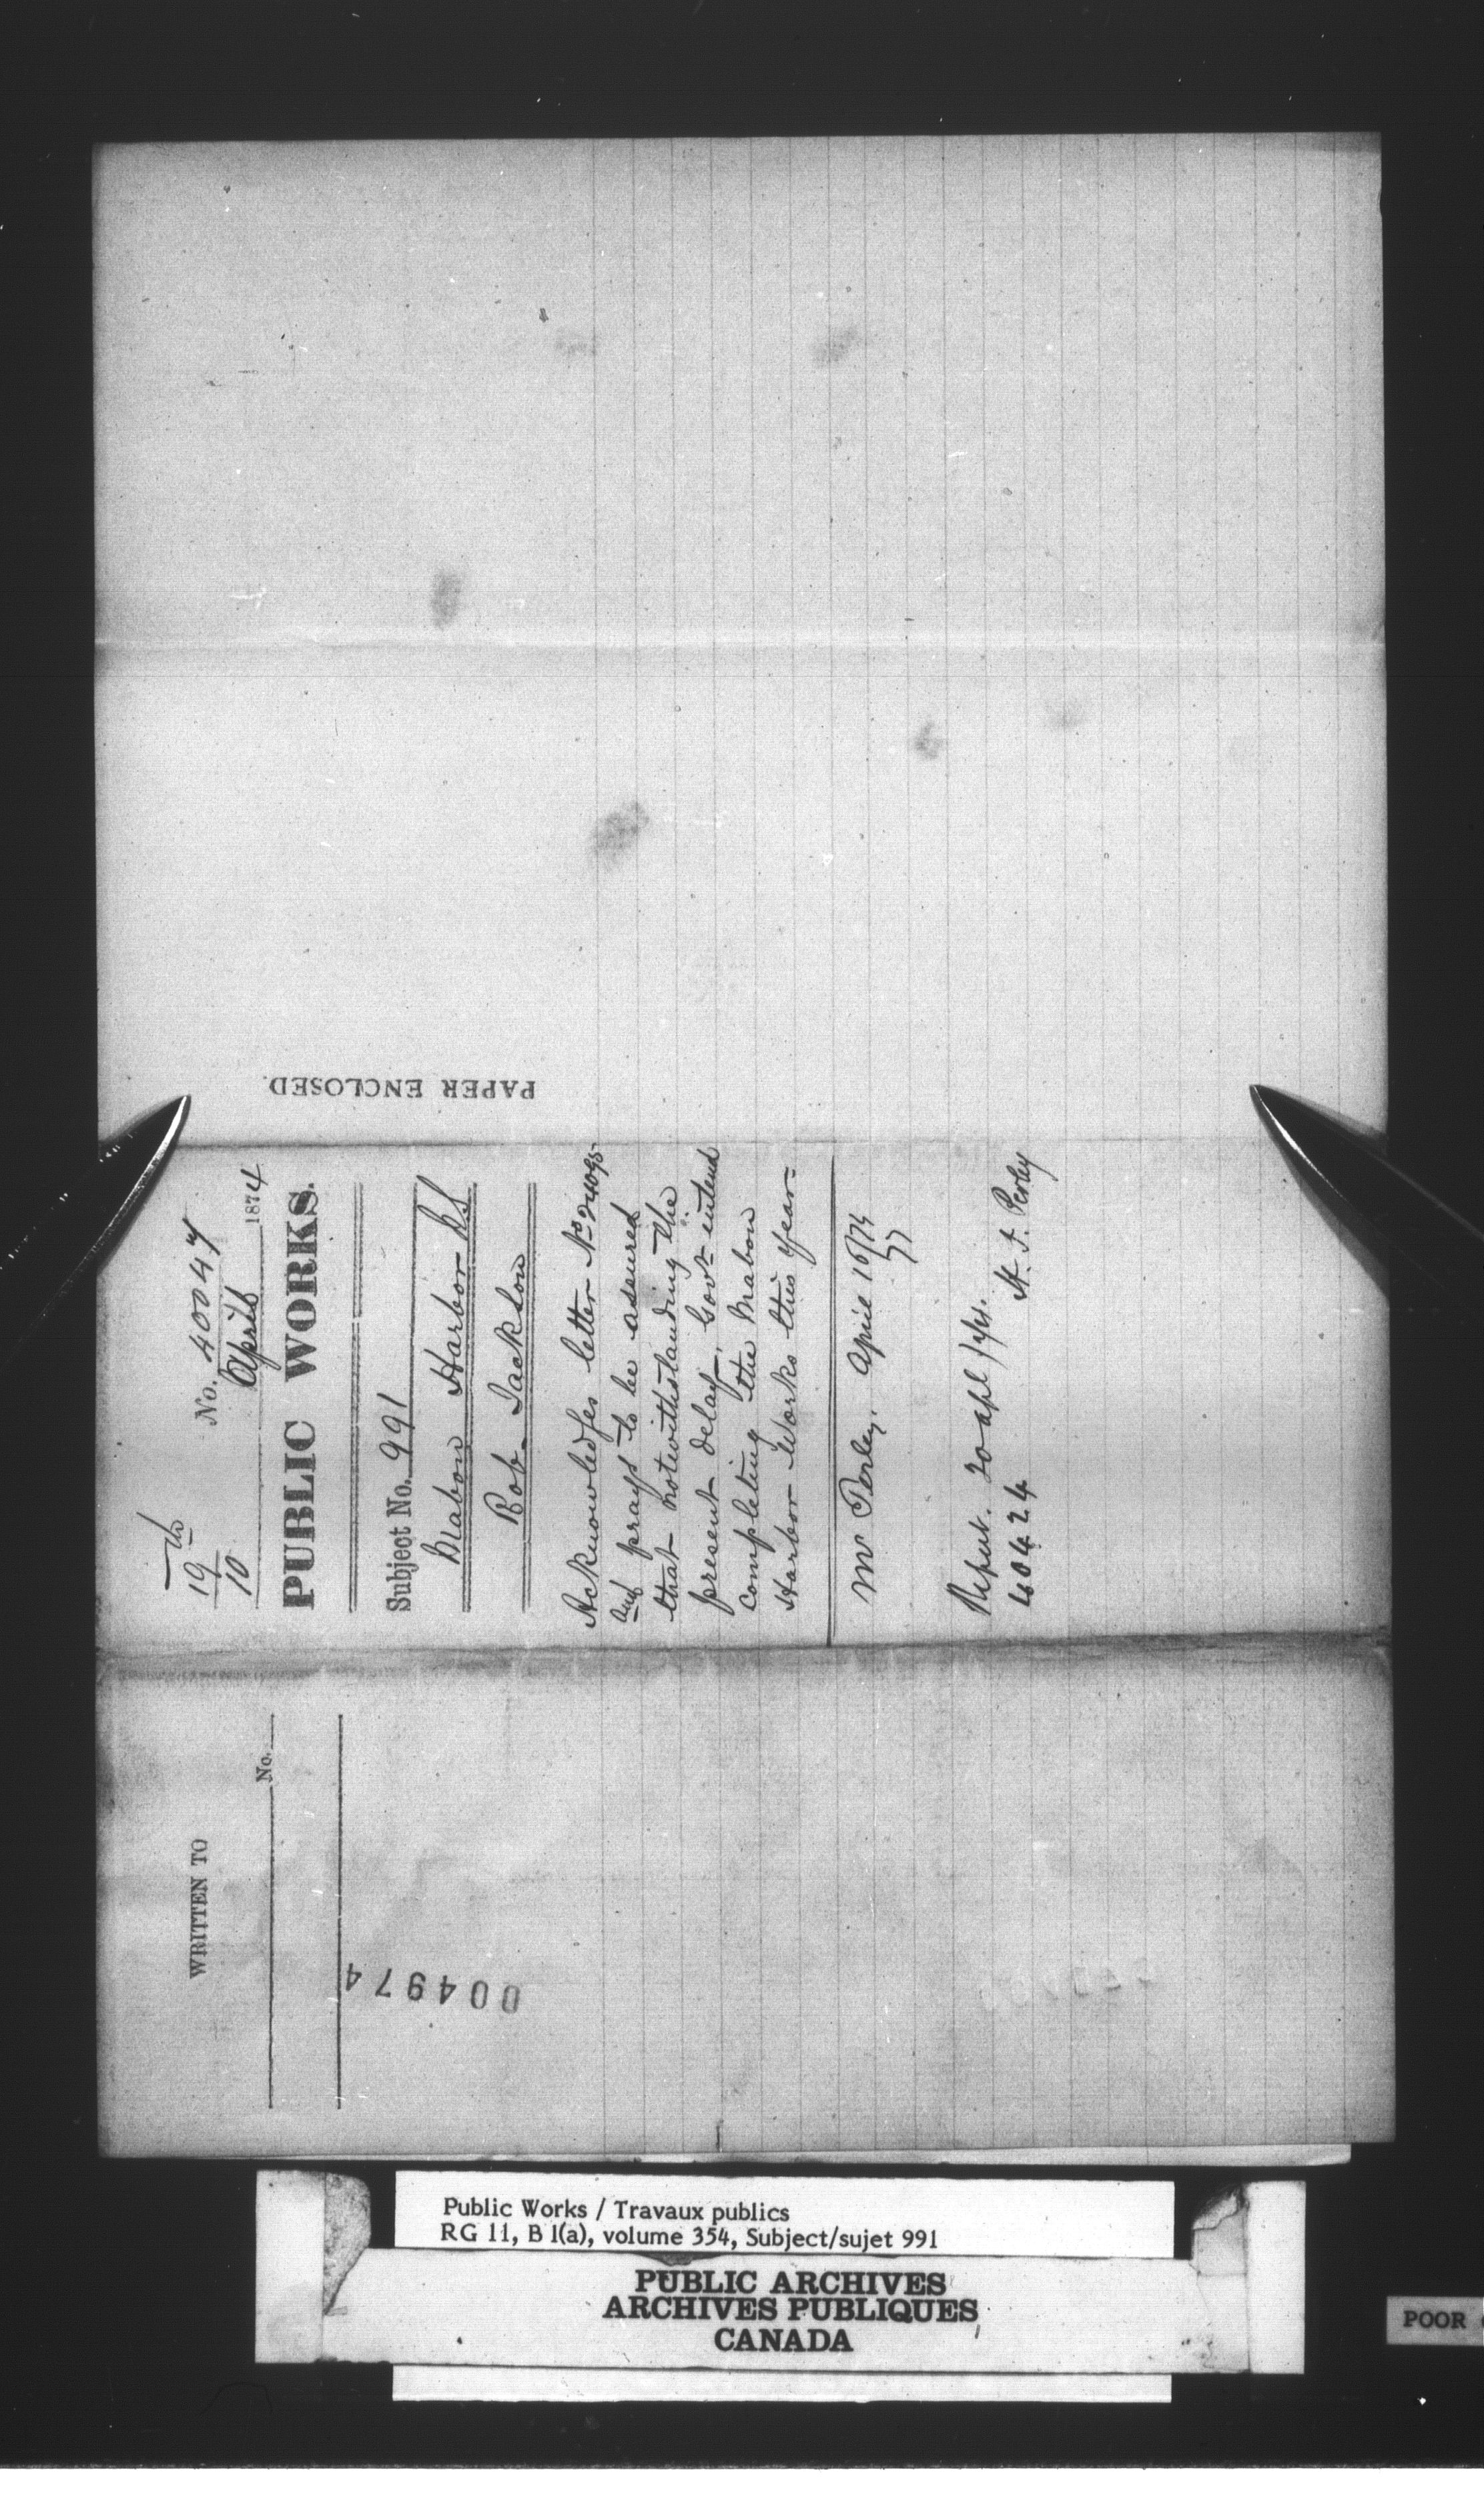 PAPER ENCLOSED.
19th
10
No. 40047
April 1874
PUBLIC WORKS.
Subject No. 991
Mabou Harbor
Rob. Jackson
Acknowledges letter No 24095
and prays to be assured
that notwithstanding the
present delay, Govt intend
completing the Mabou
Harbor Works this year-
Mr Perley. April 16/74
Report. 20 apl /74.
40424
H. F. Perley
WRITTEN TO
No.
004974
Public Works / Travaux publics
RG 11, B 1(a), volume 354, Subject/sujet 991
PUBLIC ARCHIVES
ARCHIVES PUBLIQUES
CANADA
POOR